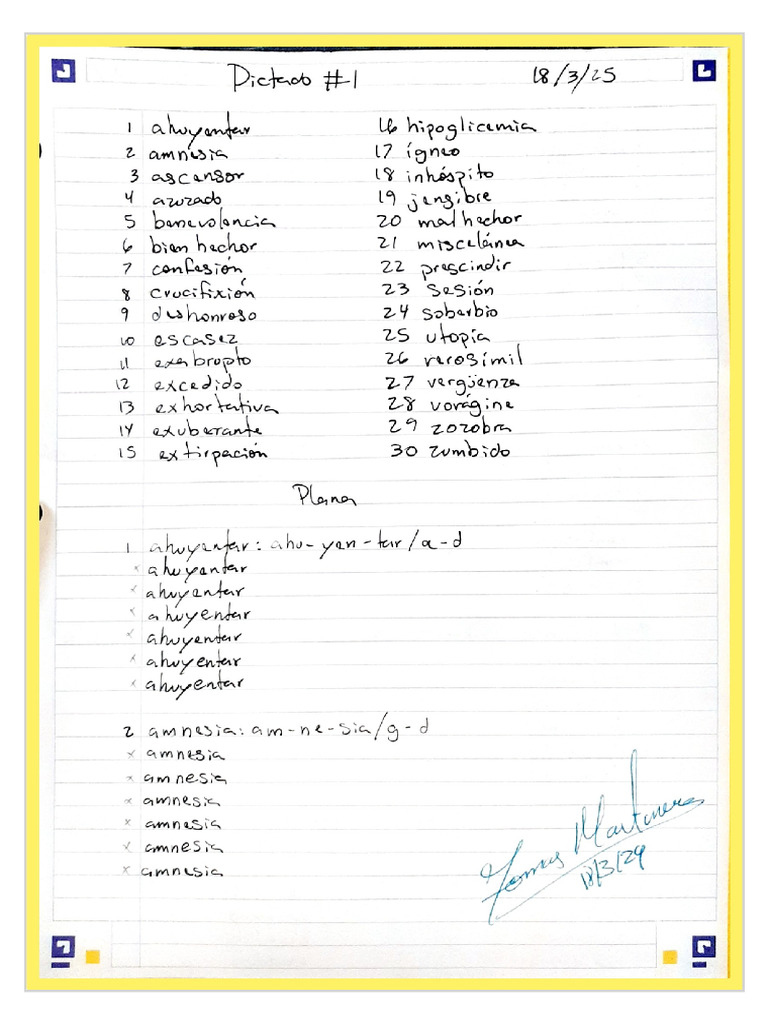 Dictado #1
18/3/25
1 ahuyentar
2 amnesia
3 ascensor
4 azuzado
5 benevolencia
6 bienhechor
7 confesión
8 crucifixión
9 deshonroso
10 escasez
11 exabrupto
12 excedido
13 exhortativa
14 exuberante
15 extirpación
16 hipoglicemia
17 ígneo
18 inhóspito
19 jengibre
20 malhechor
21 miscelánea
22 prescindir
23 sesión
24 soberbio
25 utopía
26 verosímil
27 vergüenza
28 vorágine
29 zozobra
30 zumbido
Plana
1 ahuyentar: ahu-yen-tar/a-d
x ahuyentar
x ahuyentar
x ahuyentar
x ahuyentar
x ahuyentar
x ahuyentar
2 amnesia: am-ne-sia/g-d
x amnesia
x amnesia
x amnesia
x amnesia
x amnesia
x amnesia
Tomas Martinez
18/3/24